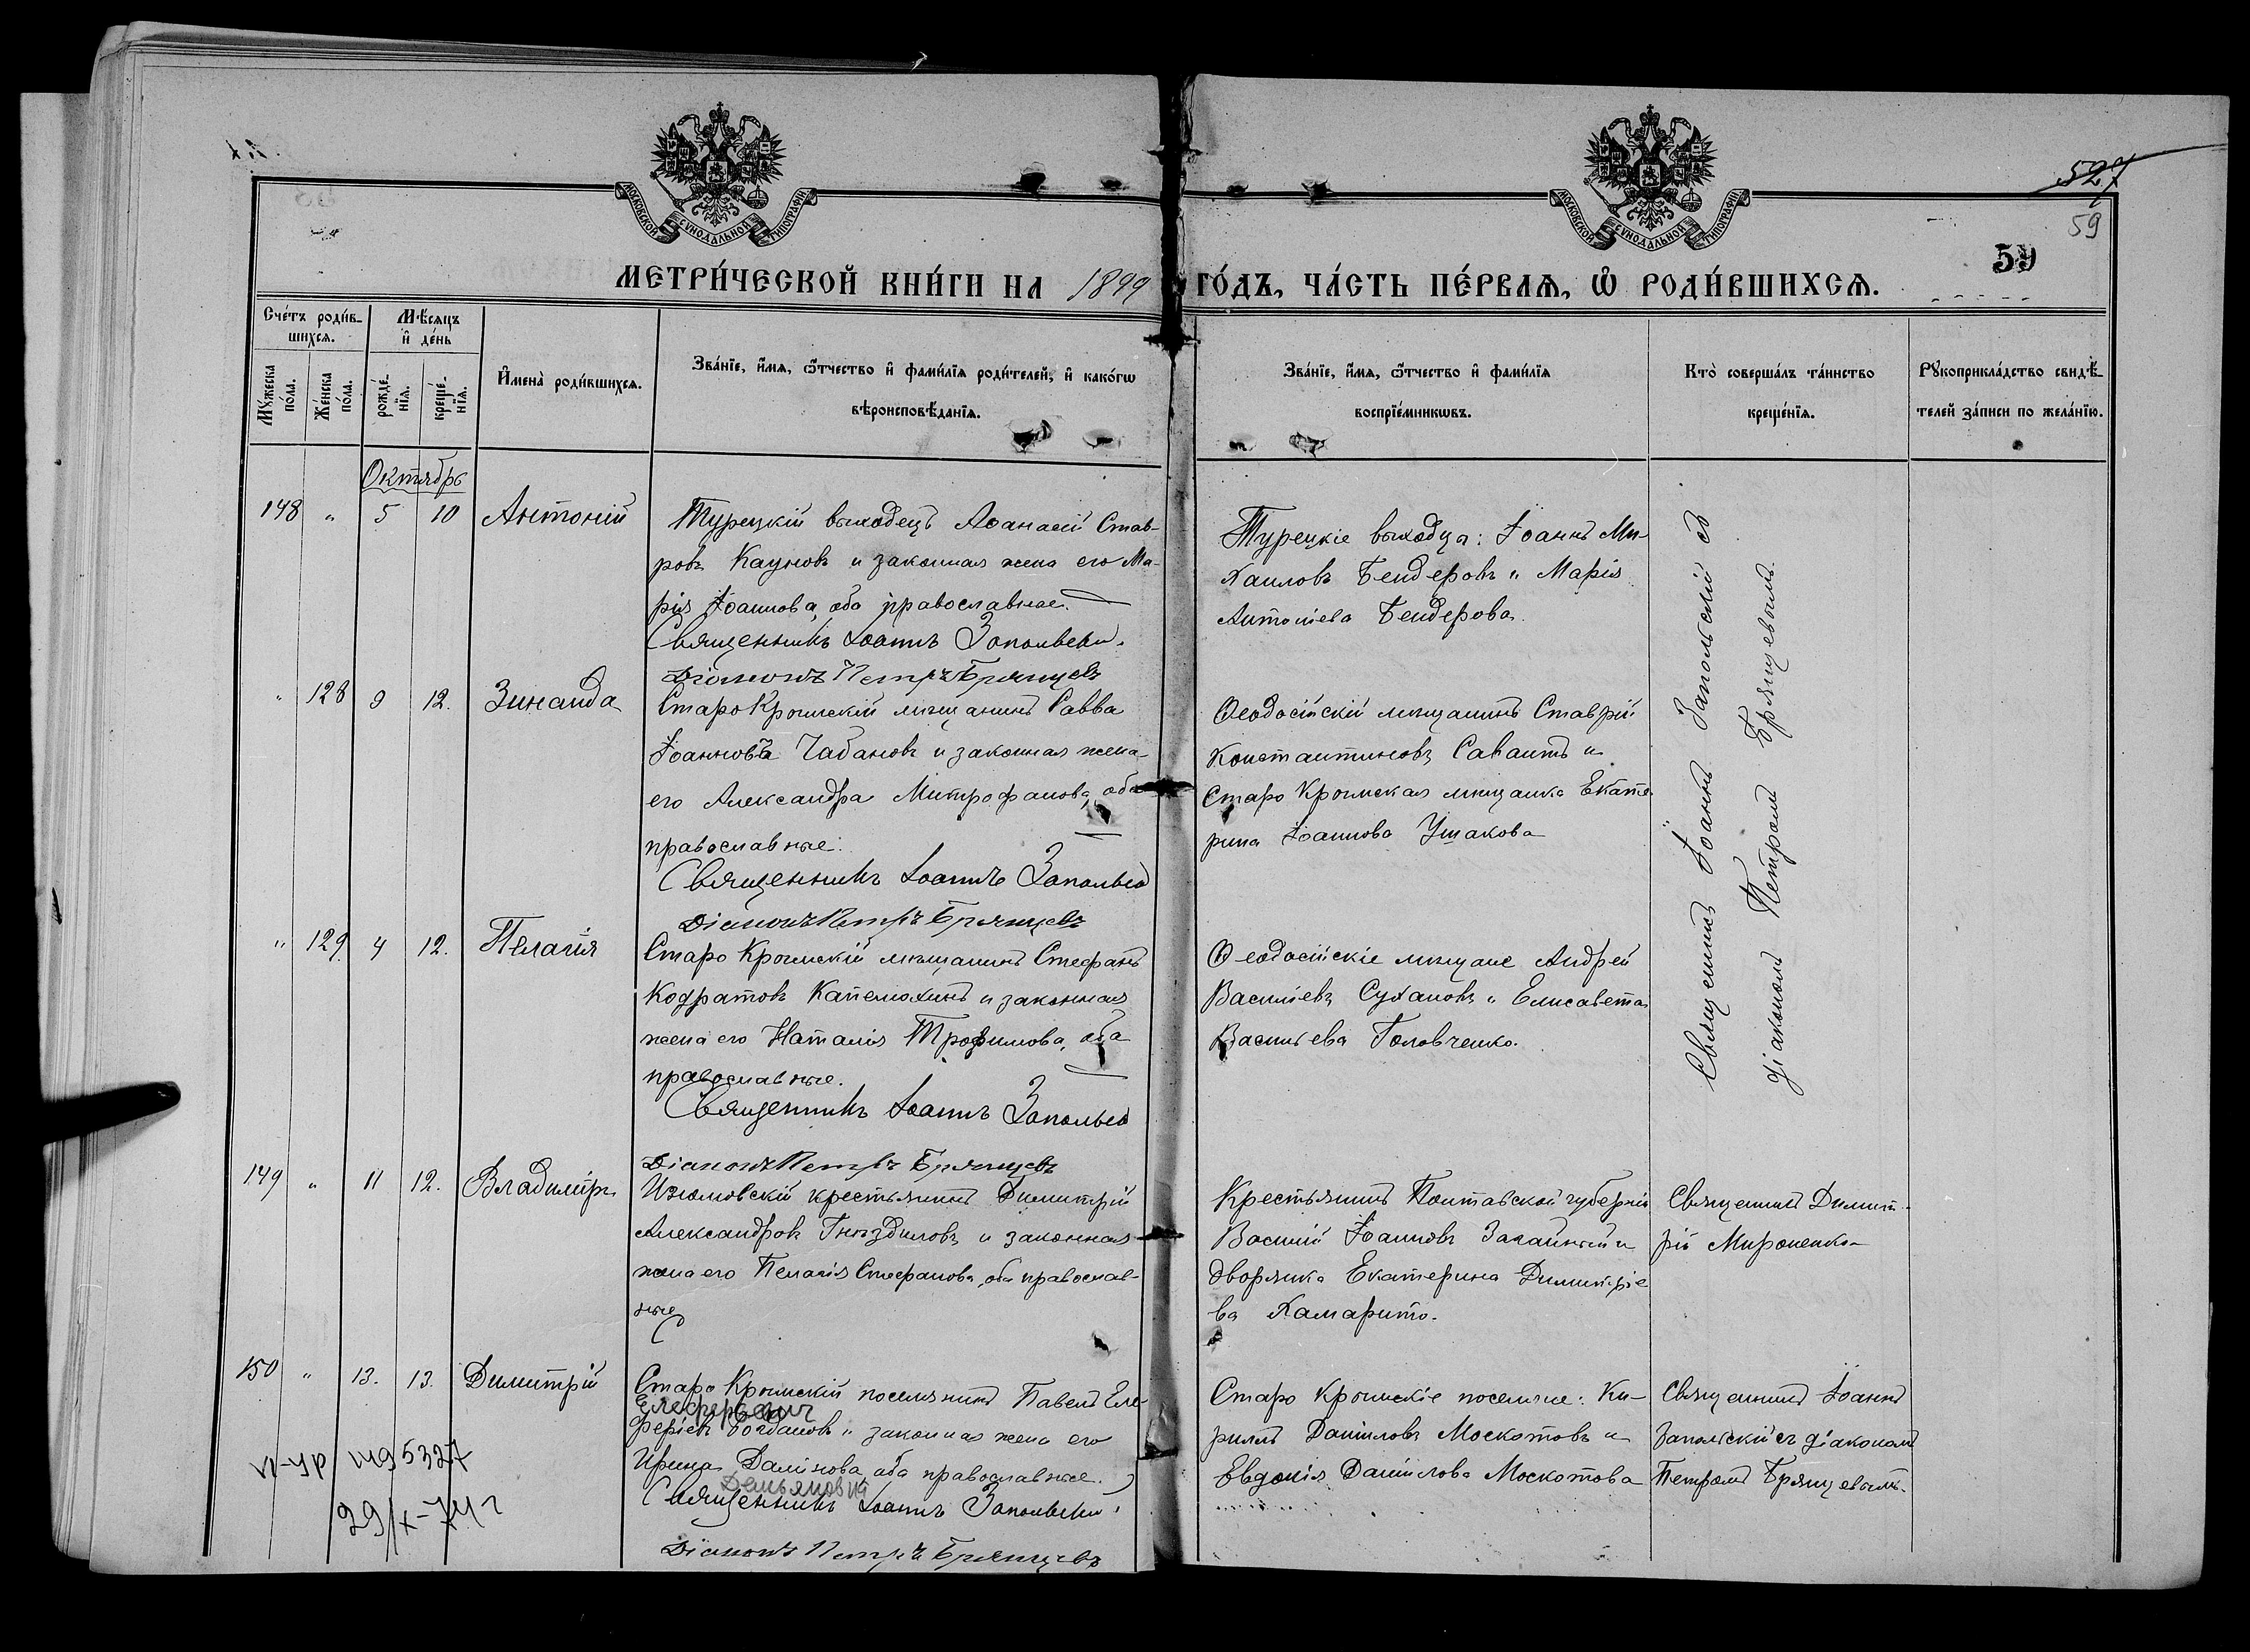 527
59
59
МОСКОВСКОЙ СѴНОДАЛЬНОЙ ТИПОГРАФІИ
МОСКОВСКОЙ СѴНОДАЛЬНОЙ ТИПОГРАФІИ
МЕТРИ́ЧЕСКОЙ КНИ́ГИ НА 1899 ГО́ДЪ, ЧА́СТЬ ПЕ́РВАѦ, Ѽ РОДИ́ВШИХСѦ.
Счéтъ роди́в-
шихсѧ.
Мꙋ́жеска по́ла.
Же́нска по́ла.
Мѣ́сѧцъ
и҆ де́нь
рожде́-
нїѧ.
креще́-
нїѧ.
И҆мена̀ роди́вшихсѧ.
Зва́нїе, и҆́мѧ, ѻ҆́тчество и҆ фами́лїѧ роди́телей, и҆ како́гѡ
вѣроисповѣ́данїѧ.
Зва́нїе, и҆́мѧ, ѻ҆́тчество и҆ фами́лїѧ
воспрїе́мникѡвъ.
Кто̀ соверша́лъ та́инство
креще́нїѧ.
Рꙋкоприкла́дство свидѣ́-
телей за́писи по жела́нїю.
Октябрь
148 " 5 10 Антоній
Турецкій выходецъ Аѳанасій Став-
ровъ Каунов и законная жена его Ма-
рія Іоаннова, оба православные.
Священникъ Іоаннъ Запольскій
Діаконъ Петръ Брянцевъ
Турецкіе выходцы: Іоаннъ Ми-
хаиловъ Бендеровъ и Марія
Антоніева Бендерова.
Священникъ Іоаннъ Запольскій съ
діакономъ Петромъ Брянцевымъ.
" 128 9 12. Зинаида
Старо Крымскій мѣщанинъ Савва
Іоанновъ Чабановъ и законная жена
его Александра Митрофанова, оба
православные.
Священникъ Іоаннъ Запольскій
Діаконъ Петръ Брянцевъ
Ѳеодосійскій мѣщанинъ Ставрій
Константиновъ Саванти и
Старо Крымская мѣщанка Екате-
рина Іоаннова Ушакова
" 129 4 12. Пелагія
Старо Крымскій мѣщанинъ Стефанъ
Кодратовъ Капелюхинъ и законная
жена его Наталія Трофимова, оба
православные.
Священникъ Іоаннъ Запольскій
Діаконъ Петръ Брянцевъ
Ѳеодосійскіе мѣщане Андрей
Василіевъ Сухановъ и Елисавета
Васильева Головченко.
149 " 11 12. Владиміръ
Изюмовскій крестьянинъ Димитрій
Александров Гнѣздиловъ и законная
жена его Пелагія Стефанова, оба православ-
ные
Крестьянинъ Полтавской губерніи
Василій Іоанновъ и
дворянка Екатерина Димитріе
ва Хамарито.
Священникъ Димит-
рій Мироненко
150 " 13. 13. Димитрій
Старо Крымскій поселянинъ Павелъ Еле-
Елеферьевич
феріевъ Богдановъ и законная жена его
Ирина Далінова, оба православные.
Демьяновна
Священникъ Іоаннъ Запольскій
Діаконъ Петръ Брянцевъ
Старо Крымскіе поселяне: Ки-
риллъ Даніиловъ Москотовъ и
Евдокія Даніилова Москотова
Священникъ Іоаннъ
Запольскій съ діакономъ
Петромъ Брянцевымъ.
5327
29/X-74 г